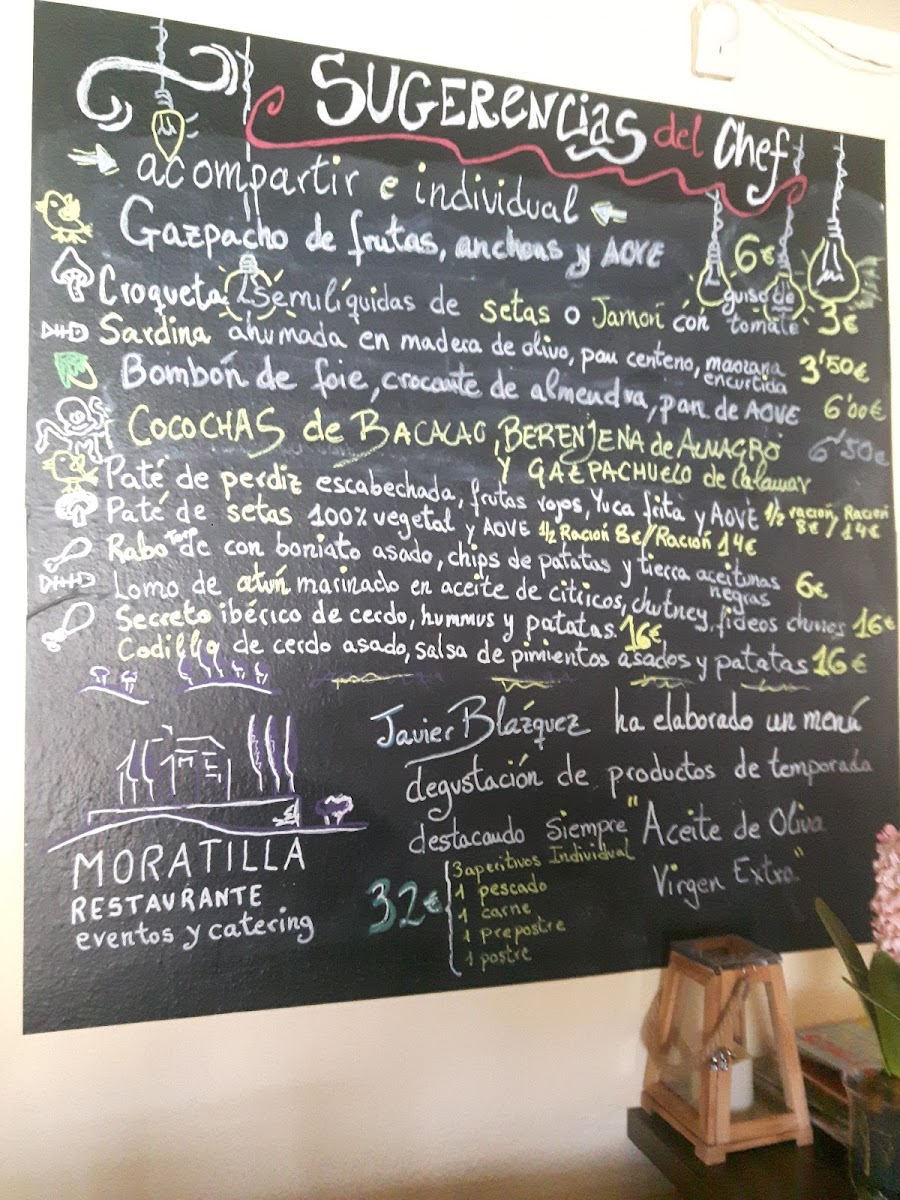 SUGERENCIAS del Chef
a compartir e individual
Gazpacho de frutas, anchoas y AOVE 6€
Croquetas semilíquidas de setas o Jamón con guiso de tomate 3€
Sardina ahumada en madera de olivo, pan centeno, manzana encurtida 3'50€
Bombón de foie, crocante de almendra, pan de AOVE 6'00€
COCOCHAS de BACALAO, BERENJENA de ALMAGRO 6'50€
Y GAZPACHUELO de Calamar
Paté de perdiz escabechada, frutas rojos, Yuca frita y AOVE 1/2 ración 8€ / Ración 14€
Paté de setas 100% vegetal y AOVE 1/2 Ración 8€/Ración 14€
Rabo Toro de con boniato asado, chips de patatas y tierra aceitunas negras 6€
Lomo de atún marinado en aceite de cítricos, chutney, fideos chinos 16€
Secreto ibérico de cerdo, hummus y patatas 16€
Codillo de cerdo asado, salsa de pimientos asados y patatas 16€
Javier Blázquez ha elaborado un menú
degustación de productos de temporada
destacando siempre "Aceite de Oliva
Virgen Extra"
32€
3 aperitivos Individual
1 pescado
1 carne
1 prepostre
1 postre
MORATILLA
RESTAURANTE
eventos y catering